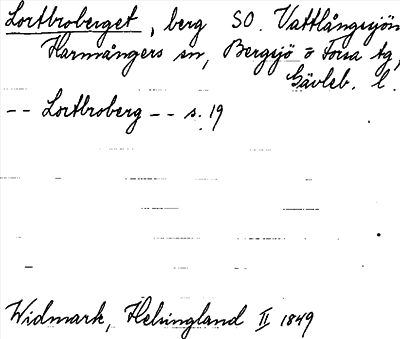 Lortbroberget, berg SO. Vattlångsjön
Harmångers sn, Bergsjö o Forsa tg,
Gävleb. l.
-- Lortbroberg -- s. 19
Widmark, Helsingland II 1849